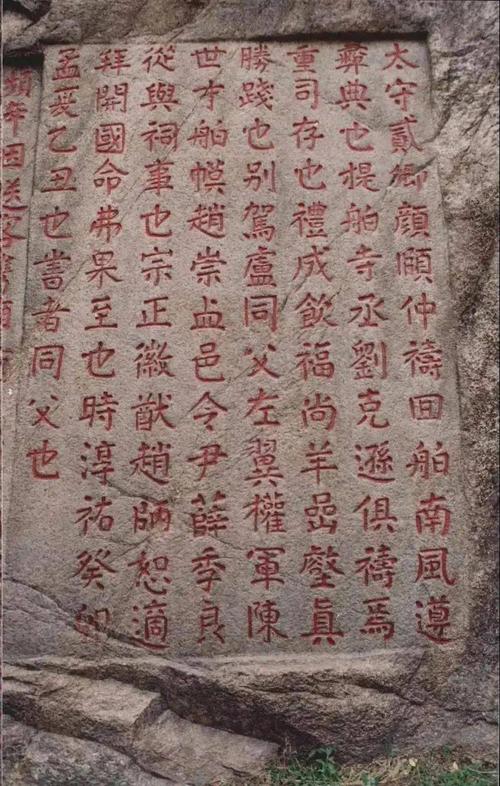 太守貳卿顏頤仲禱囬舶南風遵
彞典也提舶寺丞劉克遜俱禱焉
重司存也禮成飲福尚羊嵒壑眞
勝踐也别駕盧同父左翼權軍陳
世才舶幙趙崇邑令尹薛季良
從與祠事也宗正徽猷趙師恕適
拜開國命弗果至也時淳祐癸卯
孟夏乙丑也書者同父也
頻年因送客